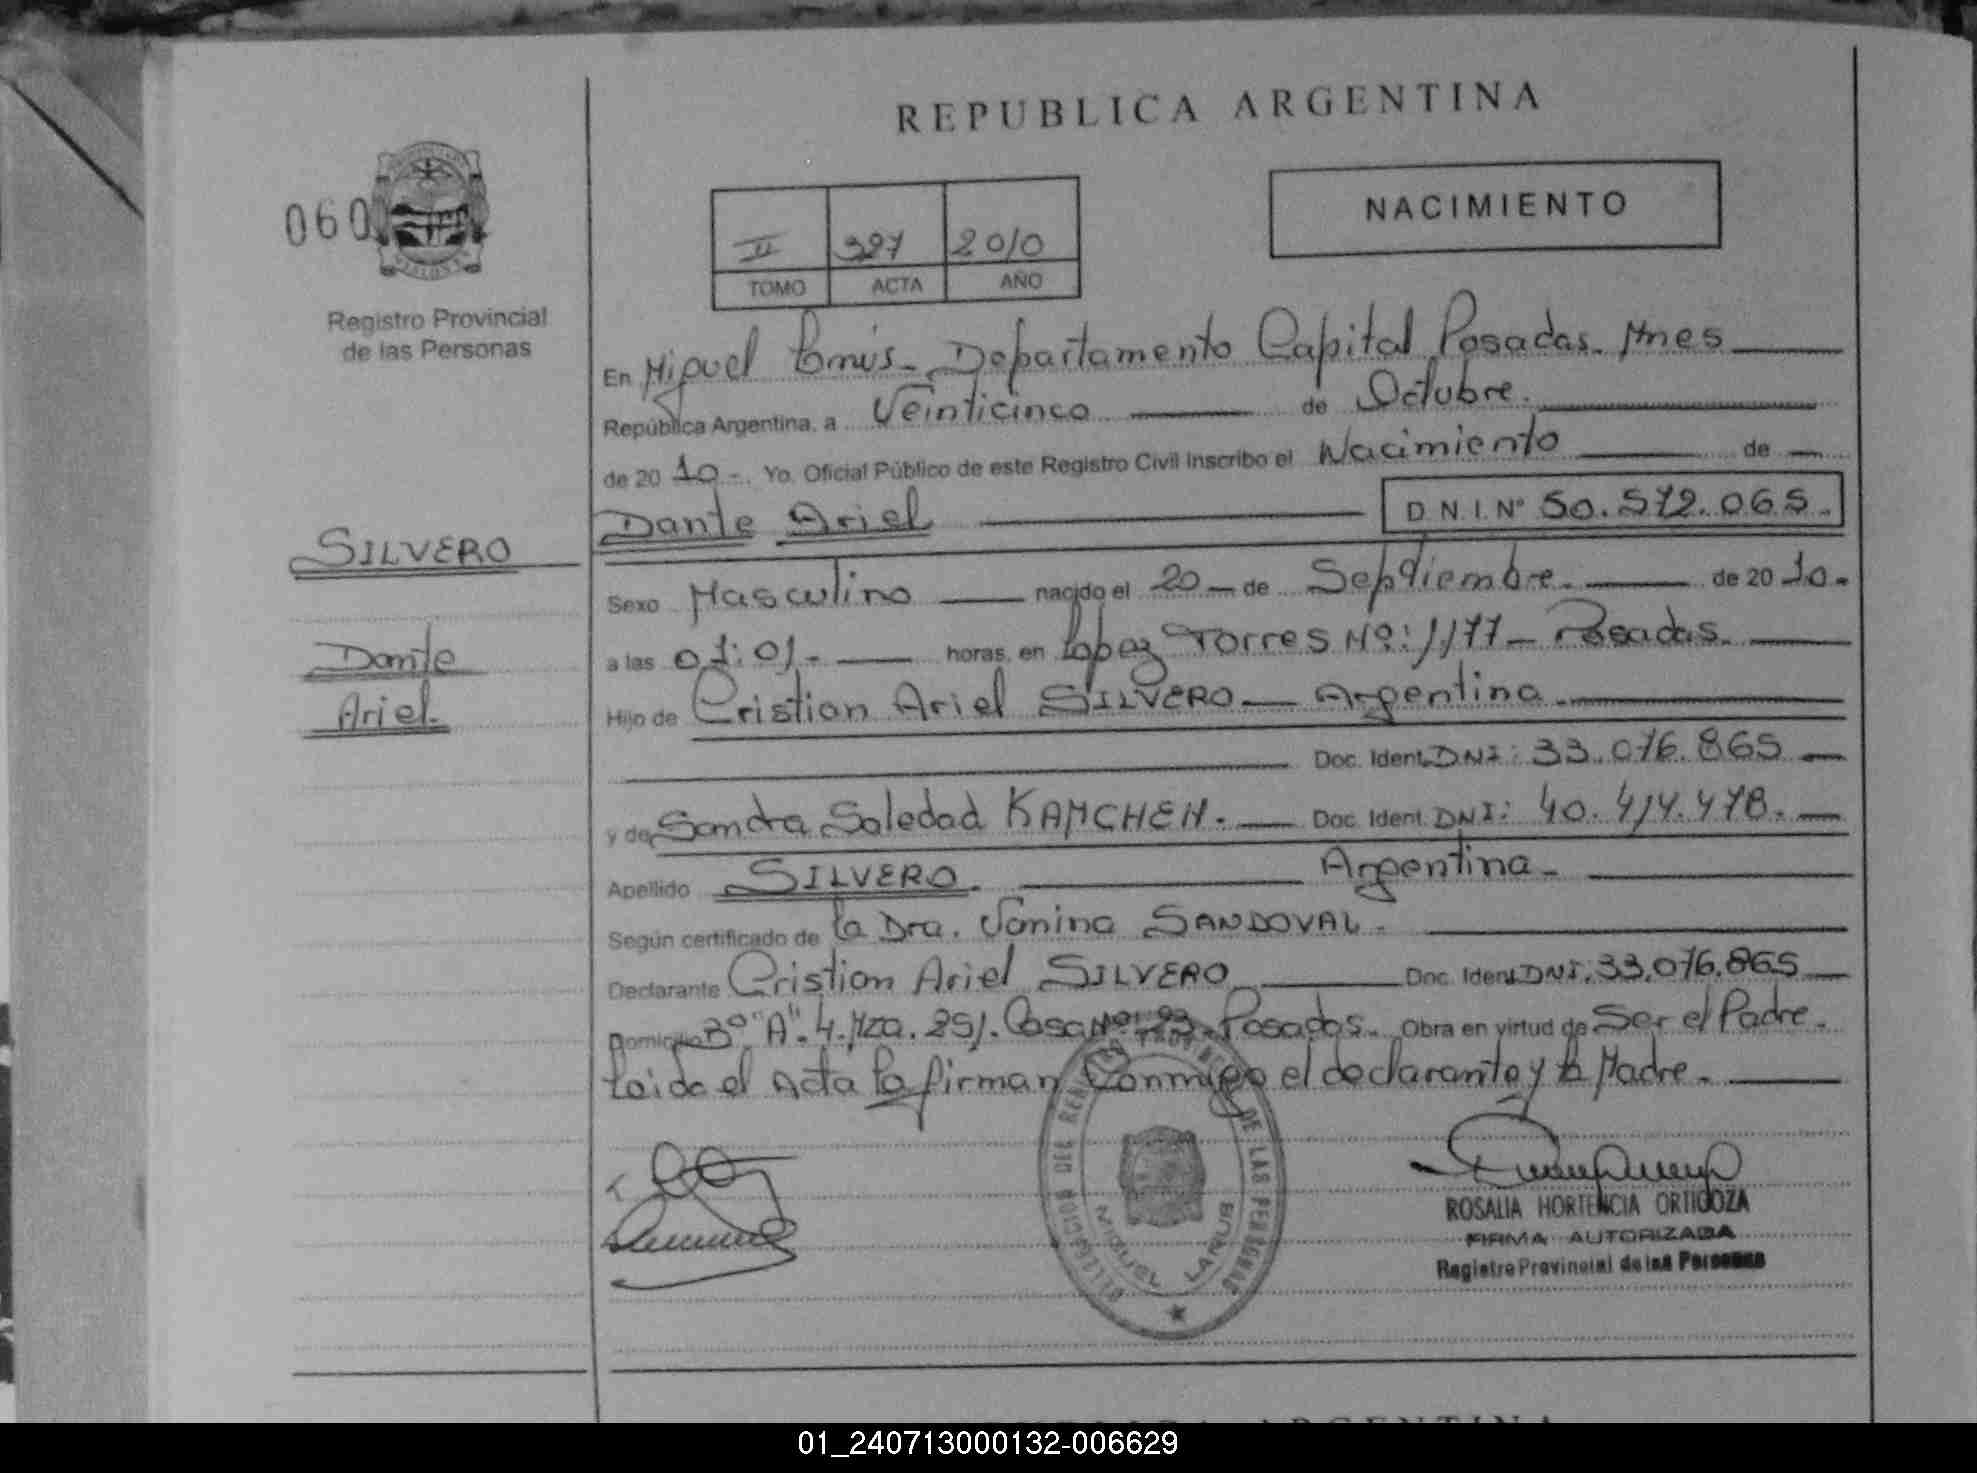 REPUBLICA ARGENTINA
060
NACIMIENTO
II 327 2010
TOMO ACTA AÑO
Registro Provincial
de las Personas
En Miguel Lanús - Departamento Capital Posadas. Mnes
República Argentina, a Veinticinco de Octubre.
de 20 10 -. Yo, Oficial Público de este Registro Civil Inscribo el Nacimiento de
Dante Ariel D.N.I. Nº 50.572.065.
SILVERO
Sexo Masculino nacido el 20 de Septiembre. de 20 10.
Dante
a las 01:01. horas, en Lopez Torres Nº: 1177 - Posadas.
Ariel.
Hijo de Cristian Ariel SILVERO - Argentina.
Doc. Ident. DNI: 33.076.865
y de Sandra Soledad KAMCHEN. Doc. Ident. DNI: 40.414.478.
Apellido SILVERO. Argentina.
Según certificado de la Dra. Vanina SANDOVAL.
Declarante Cristian Ariel SILVERO Doc. Ident. DNI: 33.076.865
Domicilio Bº "A". 4. Mza. 251. Casa Nº: 23. Posadas. Obra en virtud de Ser el Padre.
Leida el Acta la firman Conmigo el declarante y la Madre.
DELEGACION DEL REGISTRO PROVINCIAL DE LAS PERSONAS
MIGUEL LANUS
ROSALIA HORTENCIA ORTIGOZA
FIRMA AUTORIZADA
Registro Provincial de las Personas
01_240713000132-006629